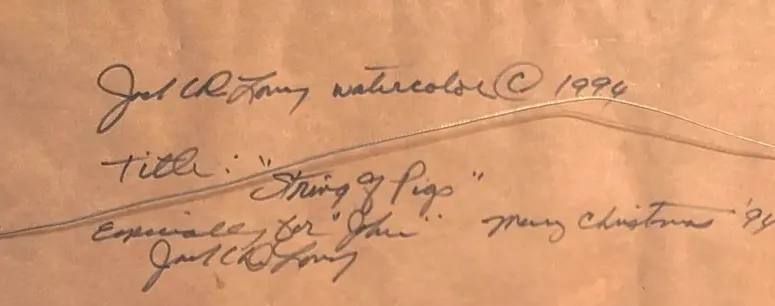 Jack C. DeLoney watercolor © 1994
Title: "String of Pigs"
Especially for "John" Merry Christmas '94
Jack C. DeLoney